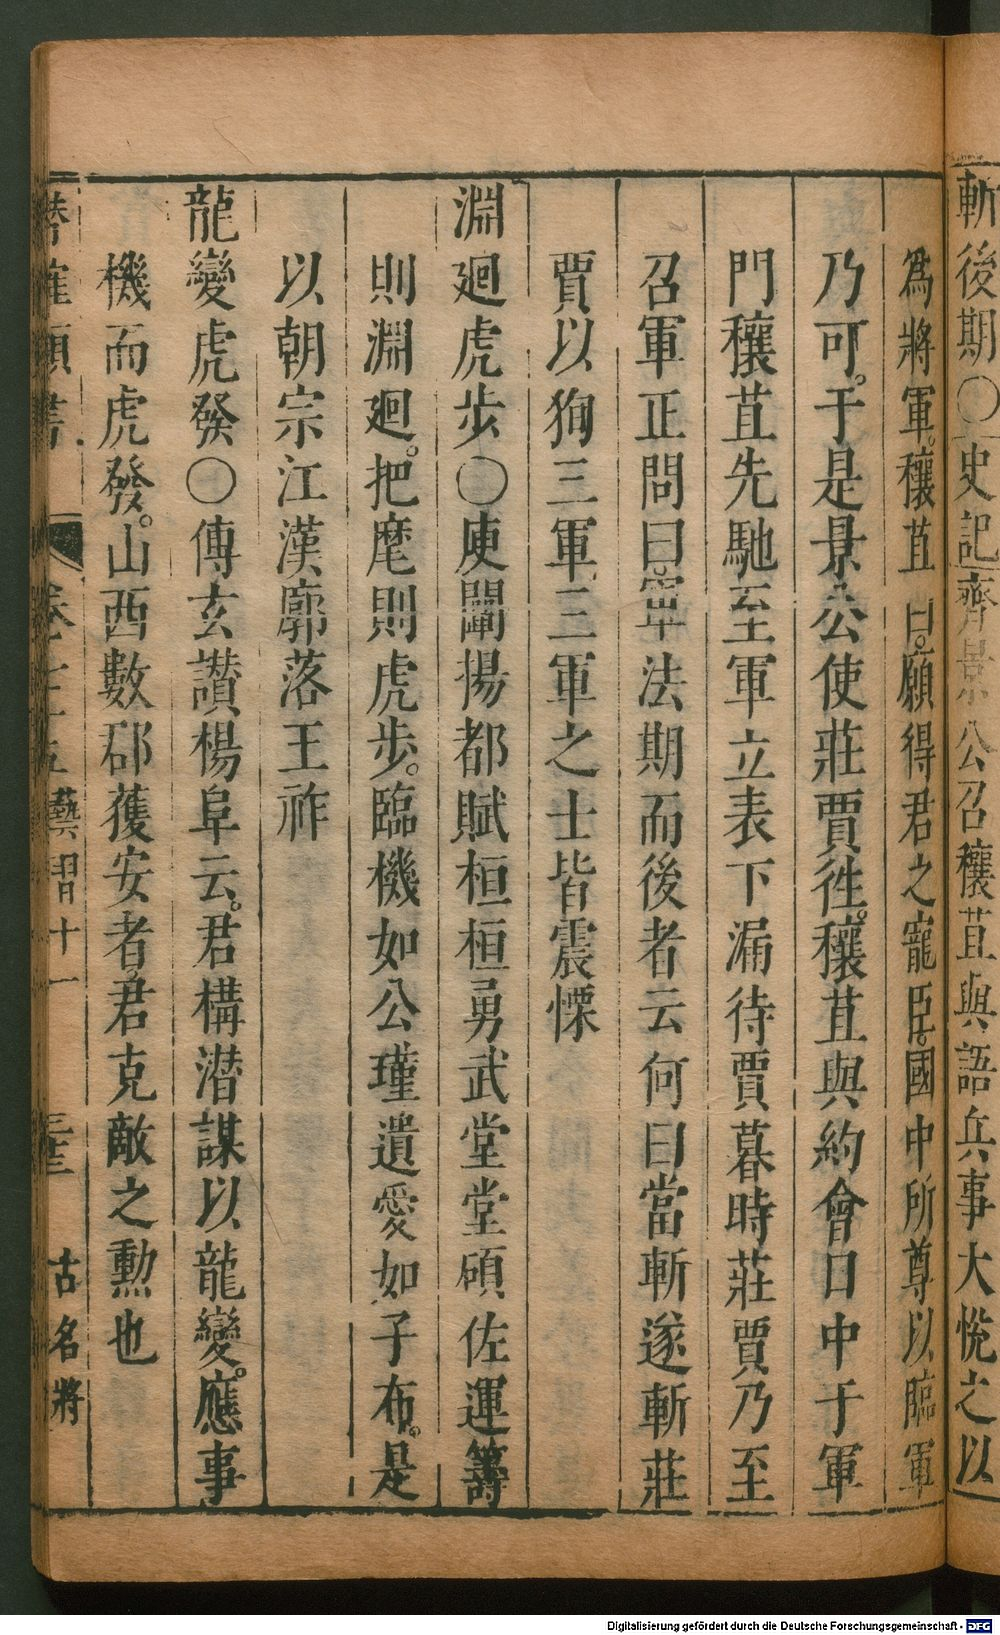 斬後期〇史記齊景公召穰苴與語兵事大悅之以
爲將軍。穰苴曰。願得君之寵臣。國中所尊以臨軍
乃可。于是景公使莊賈徃。穰苴與約會日中于軍
門穰苴先馳至軍立表下漏待賈暮時莊賈乃至
召軍正問曰。軍法期而後者云何曰當斬遂斬莊
賈以狥三軍三軍之士皆震慄
淵廻虎步〇庾闡揚都賦桓桓勇武堂堂碩佐運籌
則淵廻。把麾則虎步。臨機如公瑾遺愛如子布。是
以朝宗江漢廓落王祚
龍變虎發〇傅玄讃楊阜云。君構潜謀以龍變。應事
機而虎發。山西數郡獲安者君克敵之勳也
潛確類書
卷七十五 藝習十一 三十三 古名將
Digitalisierung gefördert durch die Deutsche Forschungsgemeinschaft - DFG